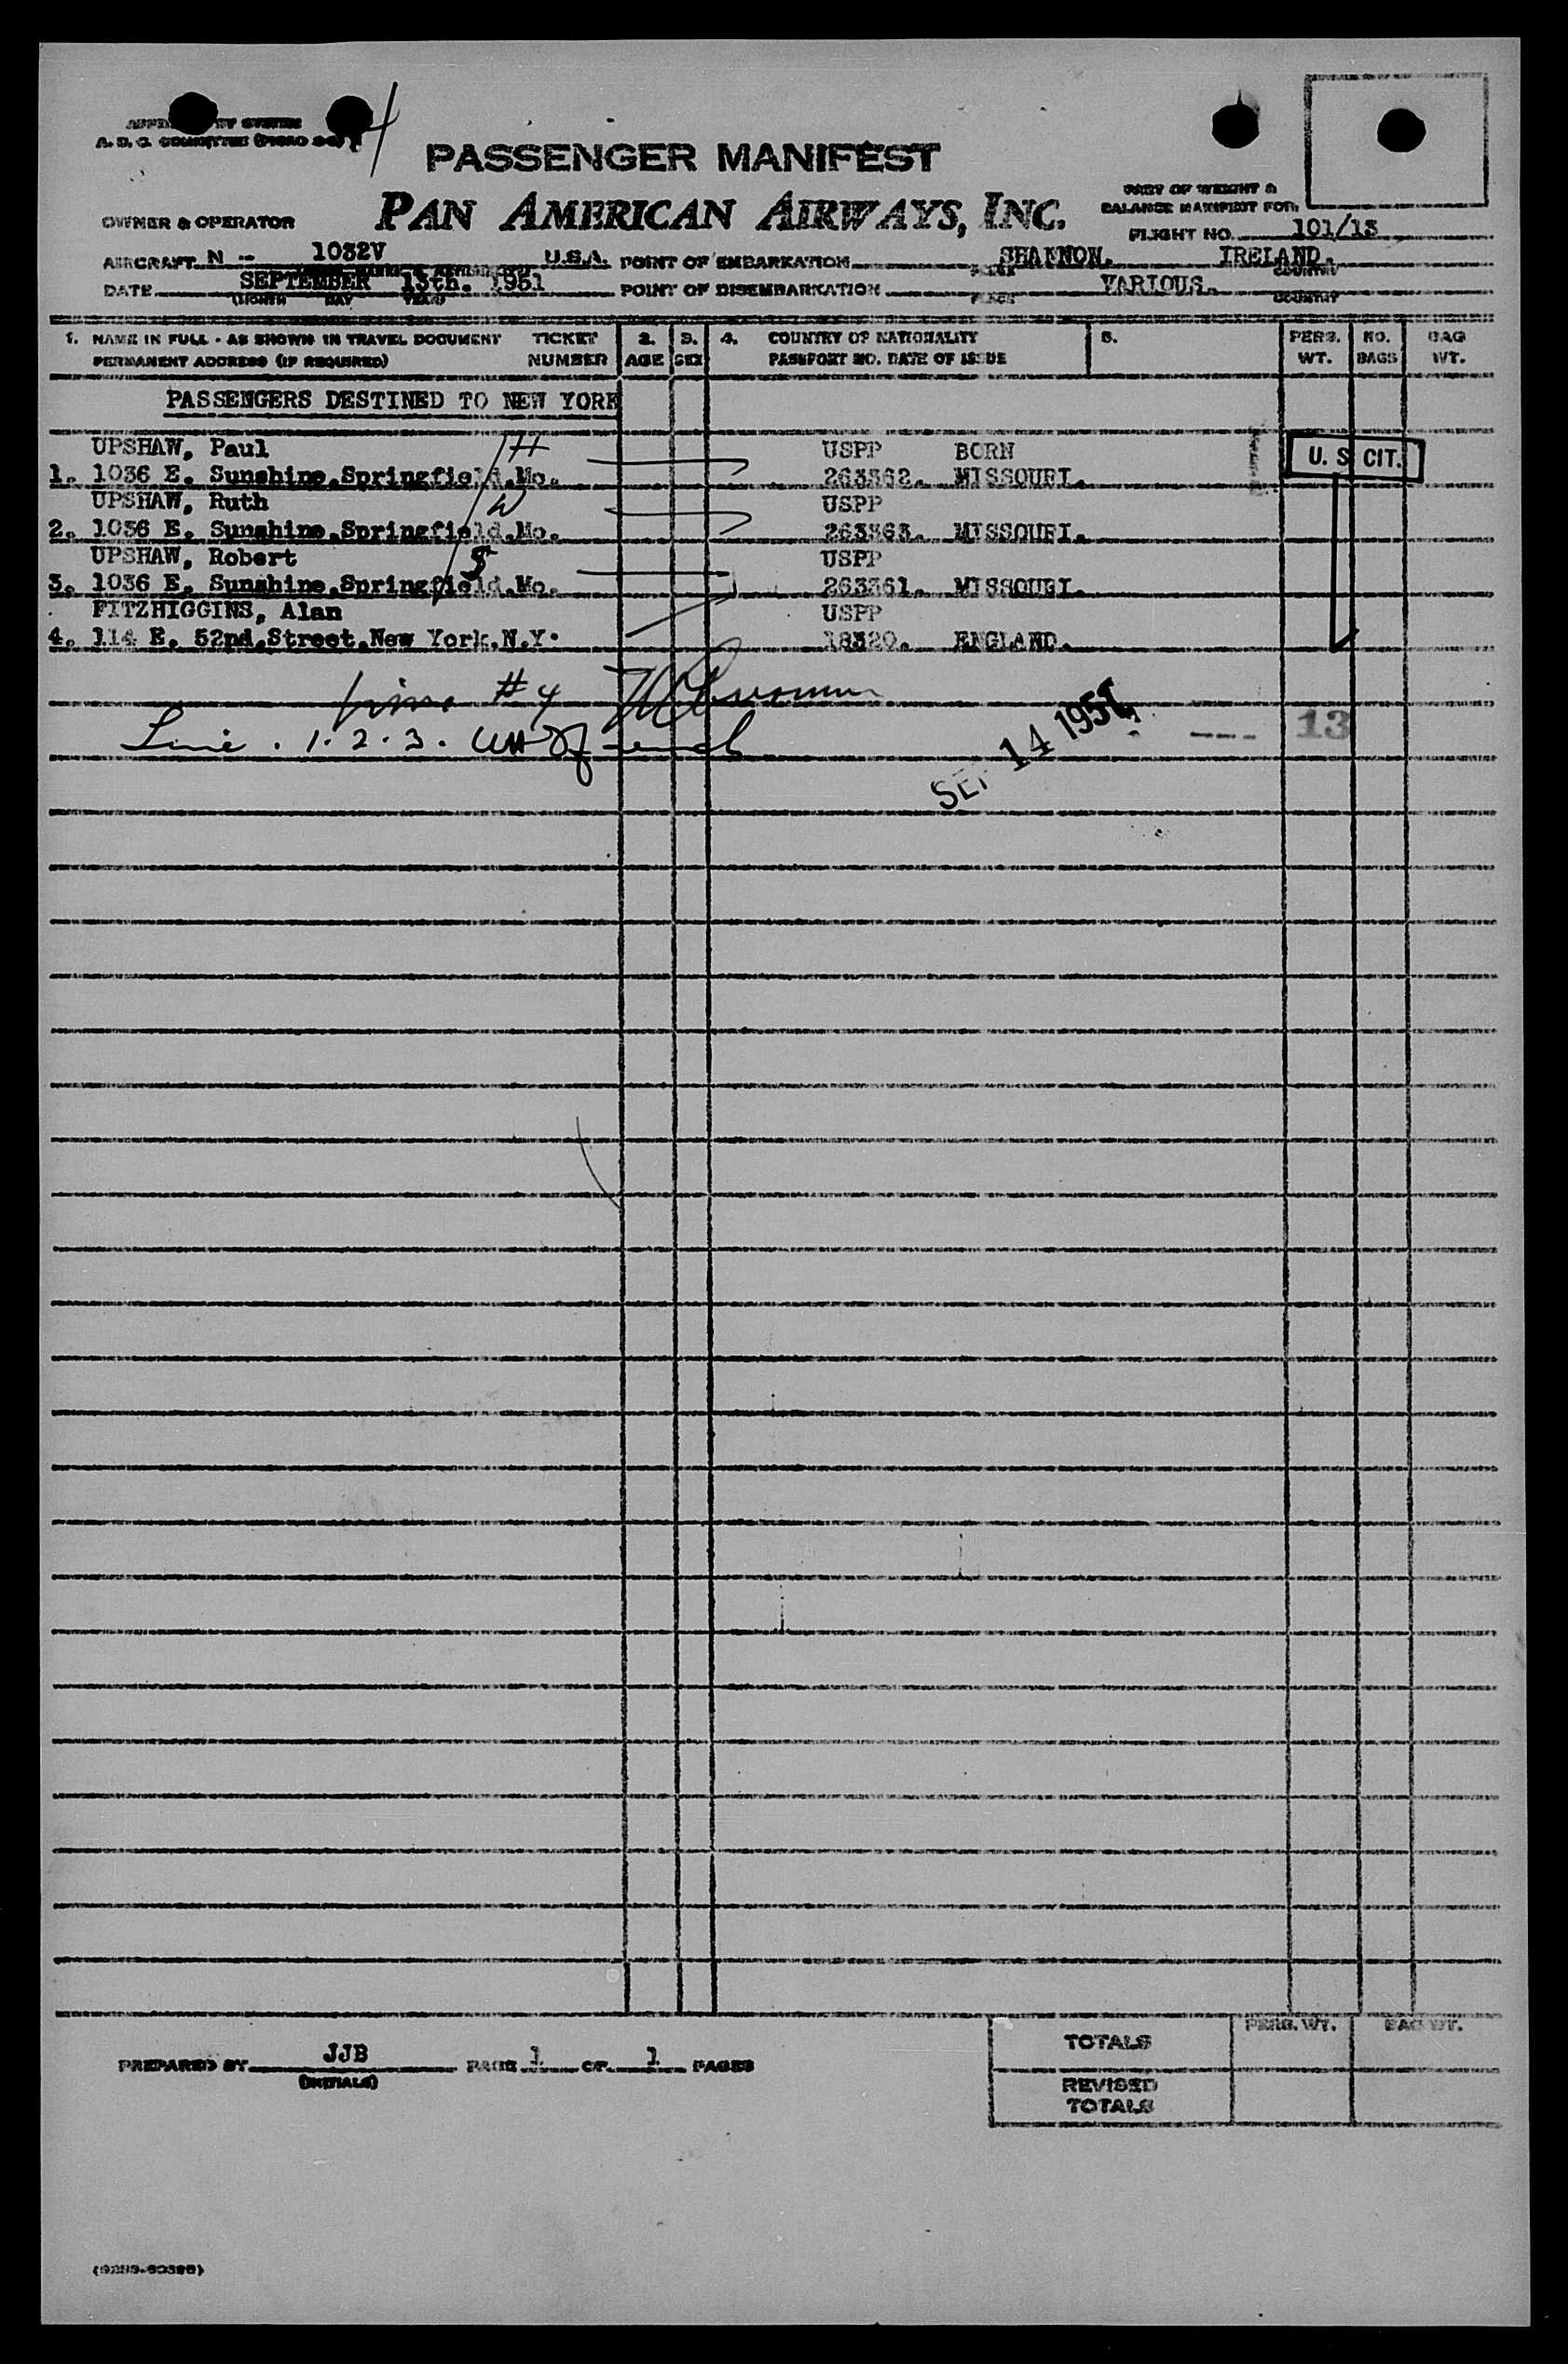 A. D. C. COMMITTEE
PASSENGER MANIFEST
PAN AMERICAN AIRWAYS, INC.
PART OF WEIGHT &
BALANCE MANIFEST FOR:
OWNER & OPERATOR
FLIGHT NO. 101/13
AIRCRAFT N -- 1032V U.S.A. POINT OF EMBARKATION SHANNON. IRELAND.
PLACE COUNTRY
DATE SEPTEMBER 13th. 1951 POINT OF DISEMBARKATION VARIOUS.
(MONTH DAY YEAR) PLACE COUNTRY
1. NAME IN FULL - AS SHOWN IN TRAVEL DOCUMENT TICKET 2. 3. 4. COUNTRY OF NATIONALITY 5. PERS. NO. BAG
PERMANENT ADDRESS (IF REQUIRED) NUMBER AGE SEX PASSPORT NO. DATE OF ISSUE WT. BAGS WT.
PASSENGERS DESTINED TO NEW YORK
UPSHAW, Paul H USPP BORN
1. 1036 E. Sunshine.Springfield.Mo. 263362. MISSOURI. U. S. CIT.
UPSHAW, Ruth W USPP
2. 1036 E. Sunshine.Springfield.Mo. 263363. MISSOURI.
UPSHAW, Robert S USPP
3. 1036 E. Sunshine.Springfield.Mo. 263361. MISSOURI.
FITZHIGGINS, Alan USPP
4. 114 E. 52nd.Street.New York.N.Y. 18320. ENGLAND.
#4
Line . 1. 2. 3.
SEP 14 1951
13
PREPARED BY JJB PAGE 1 OF 1 PAGES
(INITIALS)
TOTALS PERS. WT. BAG WT.
REVISED
TOTALS